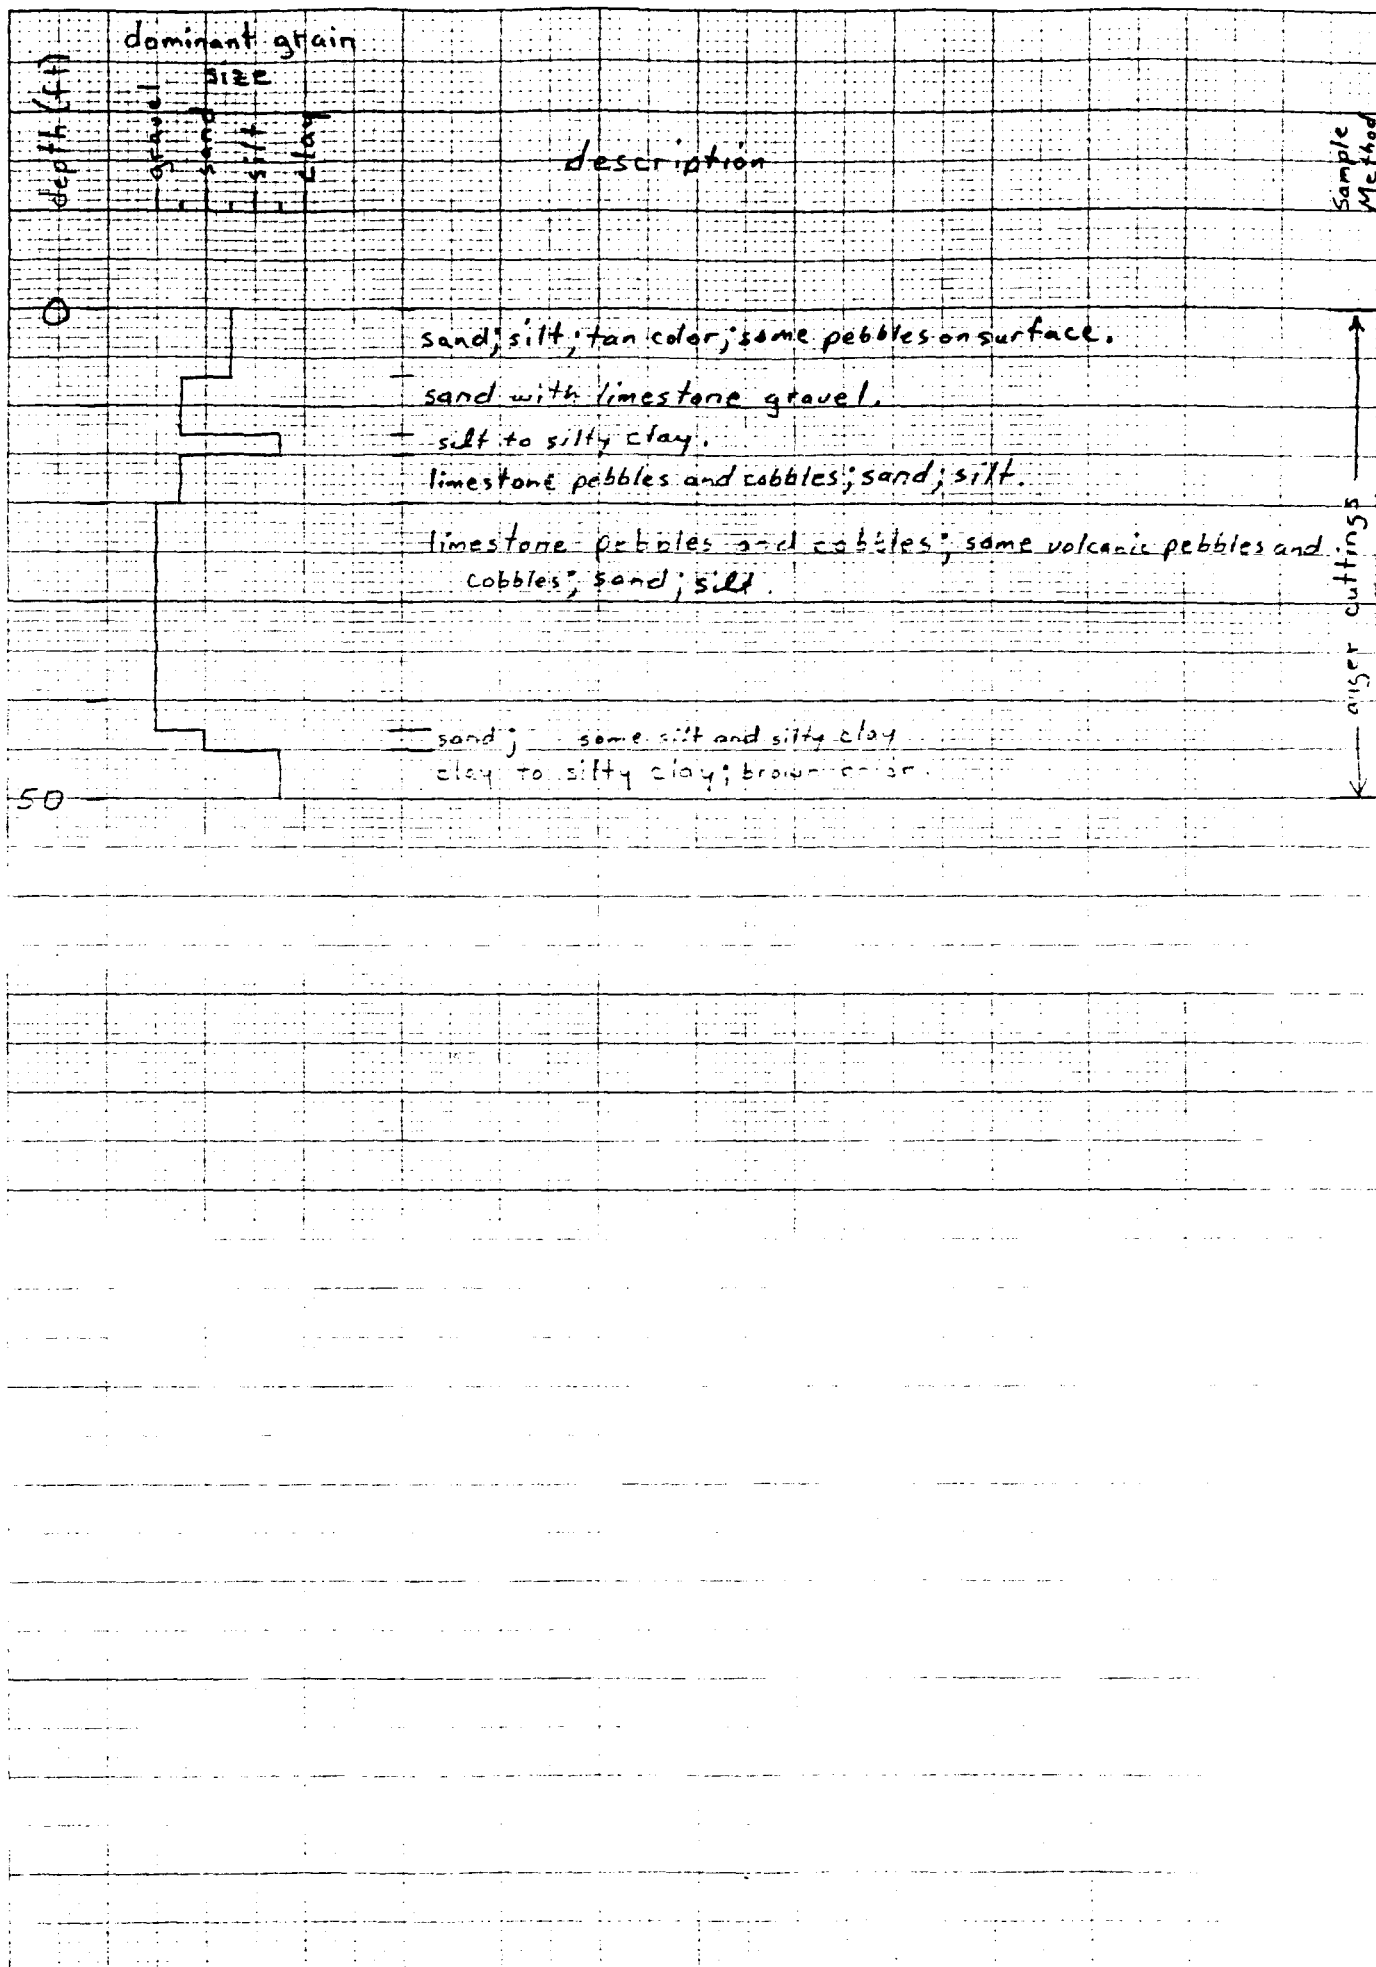 dominant grain
size
depth (ft)
gravel
sand
silt
clay
description
Sample
Method
0
sand; silt; tan color; some pebbles on surface.
sand with limestone gravel.
silt to silty clay.
limestone pebbles and cobbles; sand; silt.
limestone pebbles and cobbles; some volcanic pebbles and
cobbles; sand; silt.
auger cuttings
sand; some silt and silty clay
clay to silty clay; brown color.
50